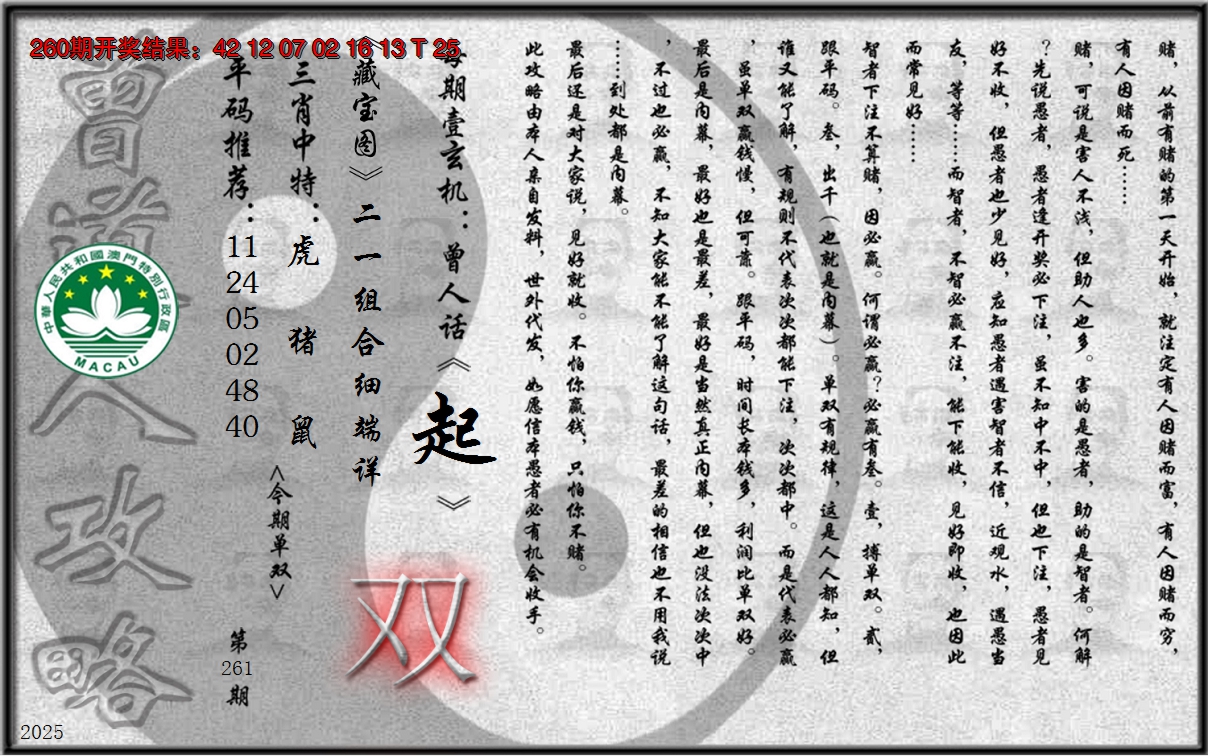 260期开奖结果：42 12 07 02 16 13 T 25
赌，从前有赌的第一天开始，就注定有人因赌而富，有人因赌而穷，
有人因赌而死……
赌，可说是害人不浅，但助人也多。害的是愚者，助的是智者。何解
？先说愚者，愚者逢开奖必下注，虽不知中不中，但也下注，愚者见
好不收，但愚者也少见好，应知愚者遇害智者不信，近观水，遇愚当
友，等等……而智者，不智必赢不注，能下能收，见好即收，也因此
而常见好……
智者下注不算赌，因必赢。何谓必赢？必赢有叁。壹，搏单双。贰，
跟平码。叁，出千（也就是内幕）。单双有规律，这是人人都知，但
谁又能了解，有规则不代表次次都能下注，次次都中。而是代表必赢
，虽单双赢钱慢，但可靠。跟平码，时间长本钱多，利润比单双好。
最后是内幕，最好也是最差，最好是当然真正内幕，但也没法次次中
，不过也必赢，不知大家能不能了解这句话，最差的相信也不用我说
……到处都是内幕。
最后还是对大家说，见好就收。不怕你赢钱，只怕你不赌。
此攻略由本人亲自发料，世外代发，如愿信本愚者必有机会收手。
每期壹玄机：曾人话《起》
《藏宝图》二一组合细端详
双
三肖中特：虎 猪 鼠
<今期单双>
平码推荐：
11
24
05
02
48
40
第
261
期
曾道人攻略
中華人民共和國澳門特別行政區
MACAU
2025